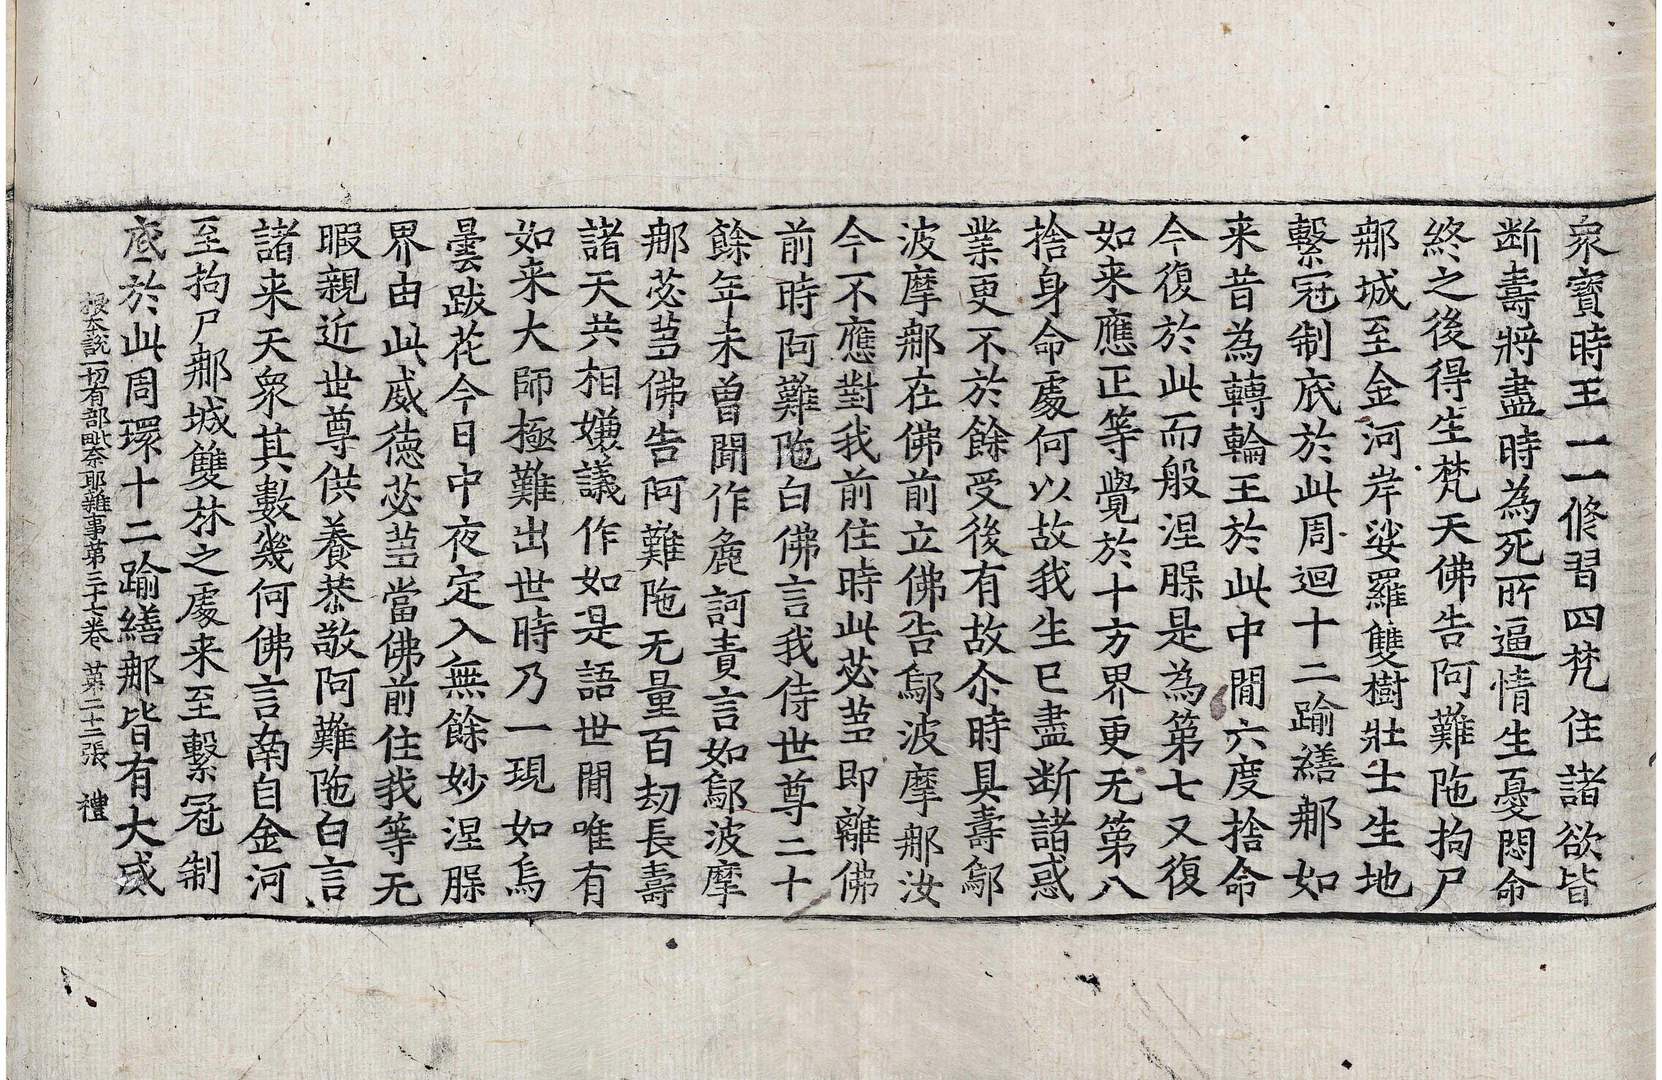 衆寶時王一一修習四梵住諸欲皆
断壽將盡時為死所逼情生憂悶命
終之後得生梵天佛告阿難陁拘尸
那城至金河岸娑羅雙樹壯士生地
繫冠制底於此周迴十二踰繕那如
来昔為轉輪王於此中閒六度捨命
今復於此而般涅腂是為第七又復
如来應正等覺於十方界更无第八
捨身命處何以故我生已盡断諸惑
業更不於餘受後有故尒時具壽鄔
波摩那在佛前立佛告鄔波摩那汝
今不應對我前住時此苾芻即離佛
前時阿難陁白佛言我侍世尊二十
餘年未曾聞作麁訶責言如鄔波摩
那苾芻佛告阿難陁无量百劫長壽
諸天共相嫌議作如是語世閒唯有
如来大師極難出世時乃一現如烏
曇跋花今日中夜定入無餘妙涅腂
界由此威德苾芻當佛前住我等无
暇親近世尊供養恭敬阿難陁白言
諸来天衆其數幾何佛言南自金河
至拘尸那城雙林之處来至繫冠制
底於此周環十二踰繕那皆有大威
根本說一切有部毗奈耶雜事第三十七卷 苐二十二張 禮